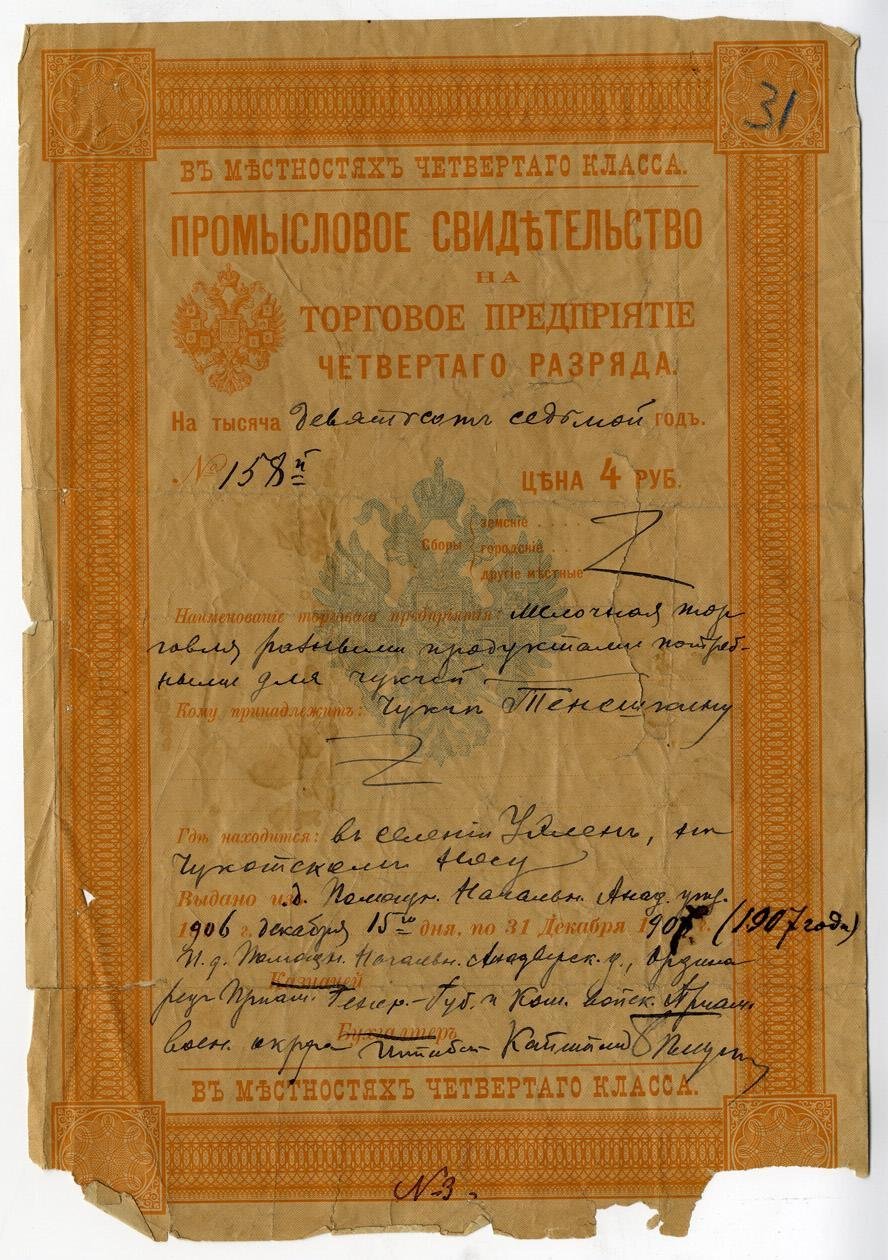 31
ВЪ МѢСТНОСТЯХЪ ЧЕТВЕРТАГО КЛАССА.
ПРОМЫСЛОВОЕ СВИДѢТЕЛЬСТВО
НА
ТОРГОВОЕ ПРЕДПРІЯТІЕ
ЧЕТВЕРТАГО РАЗРЯДА.
На тысяча девятьсотъ седьмой годъ.
№ 158й ЦѢНА 4 РУБ.
Сборы
земскіе
городскіе
другіе мѣстные
Наименованіе торговаго предпріятія: мелочная тор
говля разными продуктами потреб-
ными для чукчей
Кому принадлежитъ: Чукчѣ
Гдѣ находится: въ селеніи Уяленъ, на
Чукотскомъ носу
Выдано из.д. Помощн. Начальн. Анад. уѣзд.
1906 г. декабря 15го дня, по 31 Декабря 1907 г. (1907 года)
И.д. Помощн. Начальн. Анадырск. у., Ордина
Казначей
рецъ Приам. Генер.-Губ. и Ком. войск. Приам.
Бухгалтеръ
воен. округа Штабсъ Капитанъ
ВЪ МѢСТНОСТЯХЪ ЧЕТВЕРТАГО КЛАССА.
№3.